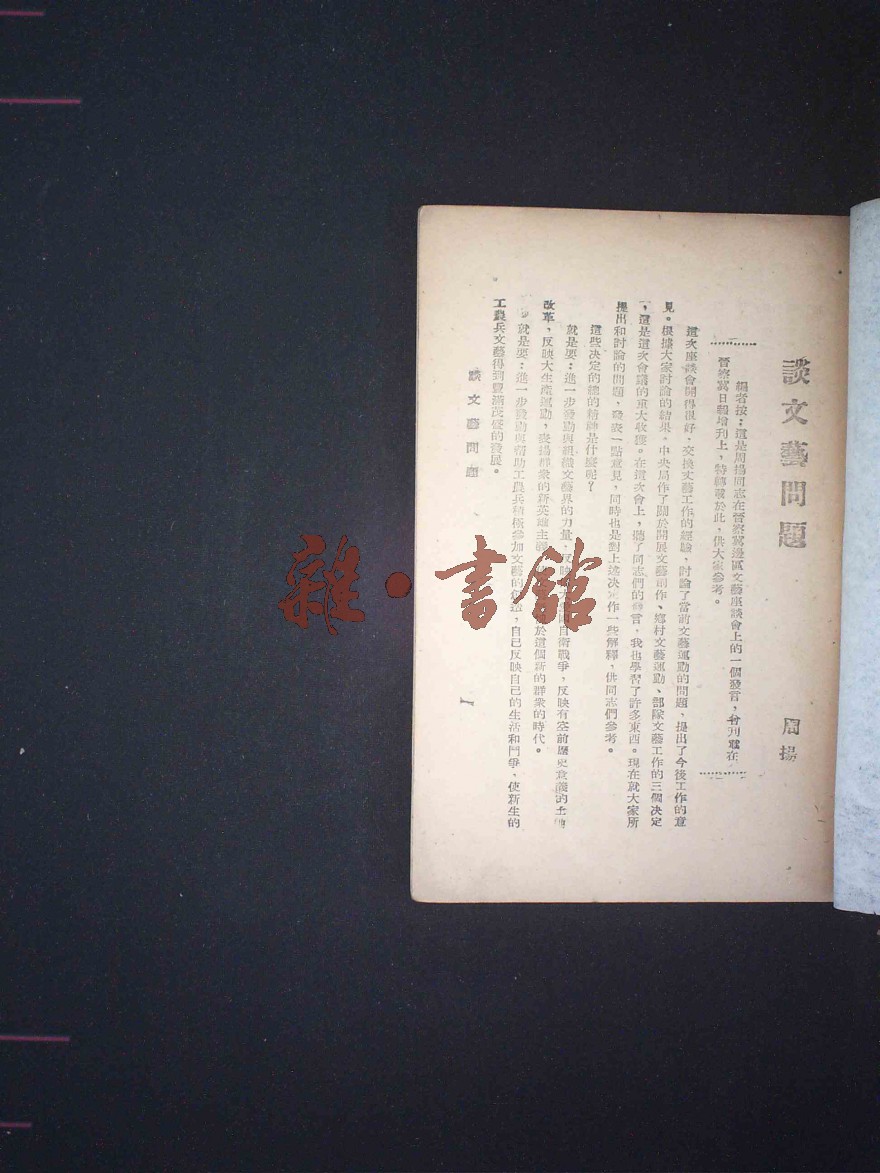 談文藝問題
周揚
編者按：這是周揚同志在晉察冀邊區文藝座談會上的一個發言，曾刊載在
晉察冀日報增刊上，特轉載於此，供大家參考。
這次座談會開得很好，交換文藝工作的經驗，討論了當前文藝運動的問題，提出了今後工作的意
見。根據大家討論的結果。中央局作了關於開展文藝創作、鄉村文藝運動、部隊文藝工作的三個決定
，這是這次會議的重大收獲。在這次會上，聽了同志們的發言，我也學習了許多東西。現在就大家所
提出和討論的問題，發表一點意見，同時也是對上述決定作一些解釋，供同志們參考。
這些決定的總的精神是什麼呢？
就是要：進一步發動與組織文藝界的力量，反映自衛戰爭，反映有空前歷史意義的土地
改革，反映大生產運動，表揚群衆的新英雄主義於這個新的群衆的時代。
就是要：進一步發動與幫助工農兵積極參加文藝的創造，自己反映自己的生活和鬥爭，使新生的
工農兵文藝得到豐滿茂盛的發展。
談文藝問題
1
雜·書館